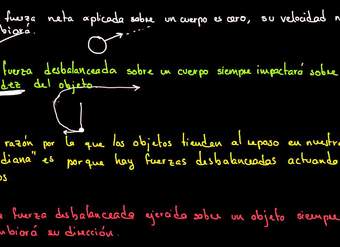 fuerza neta aplicada sobre un cuerpo es cero, su velocidad n
biará.
fuerza desbalanceada sobre un cuerpo siempre impactará sobre
dez del objeto.
razón por la que los objetos tienden al reposo en nuestra
diana" es porque hay fuerzas desbalanceadas actuando
os
fuerza desbalanceada ejercida sobre un objeto siempre
mbiará su dirección.